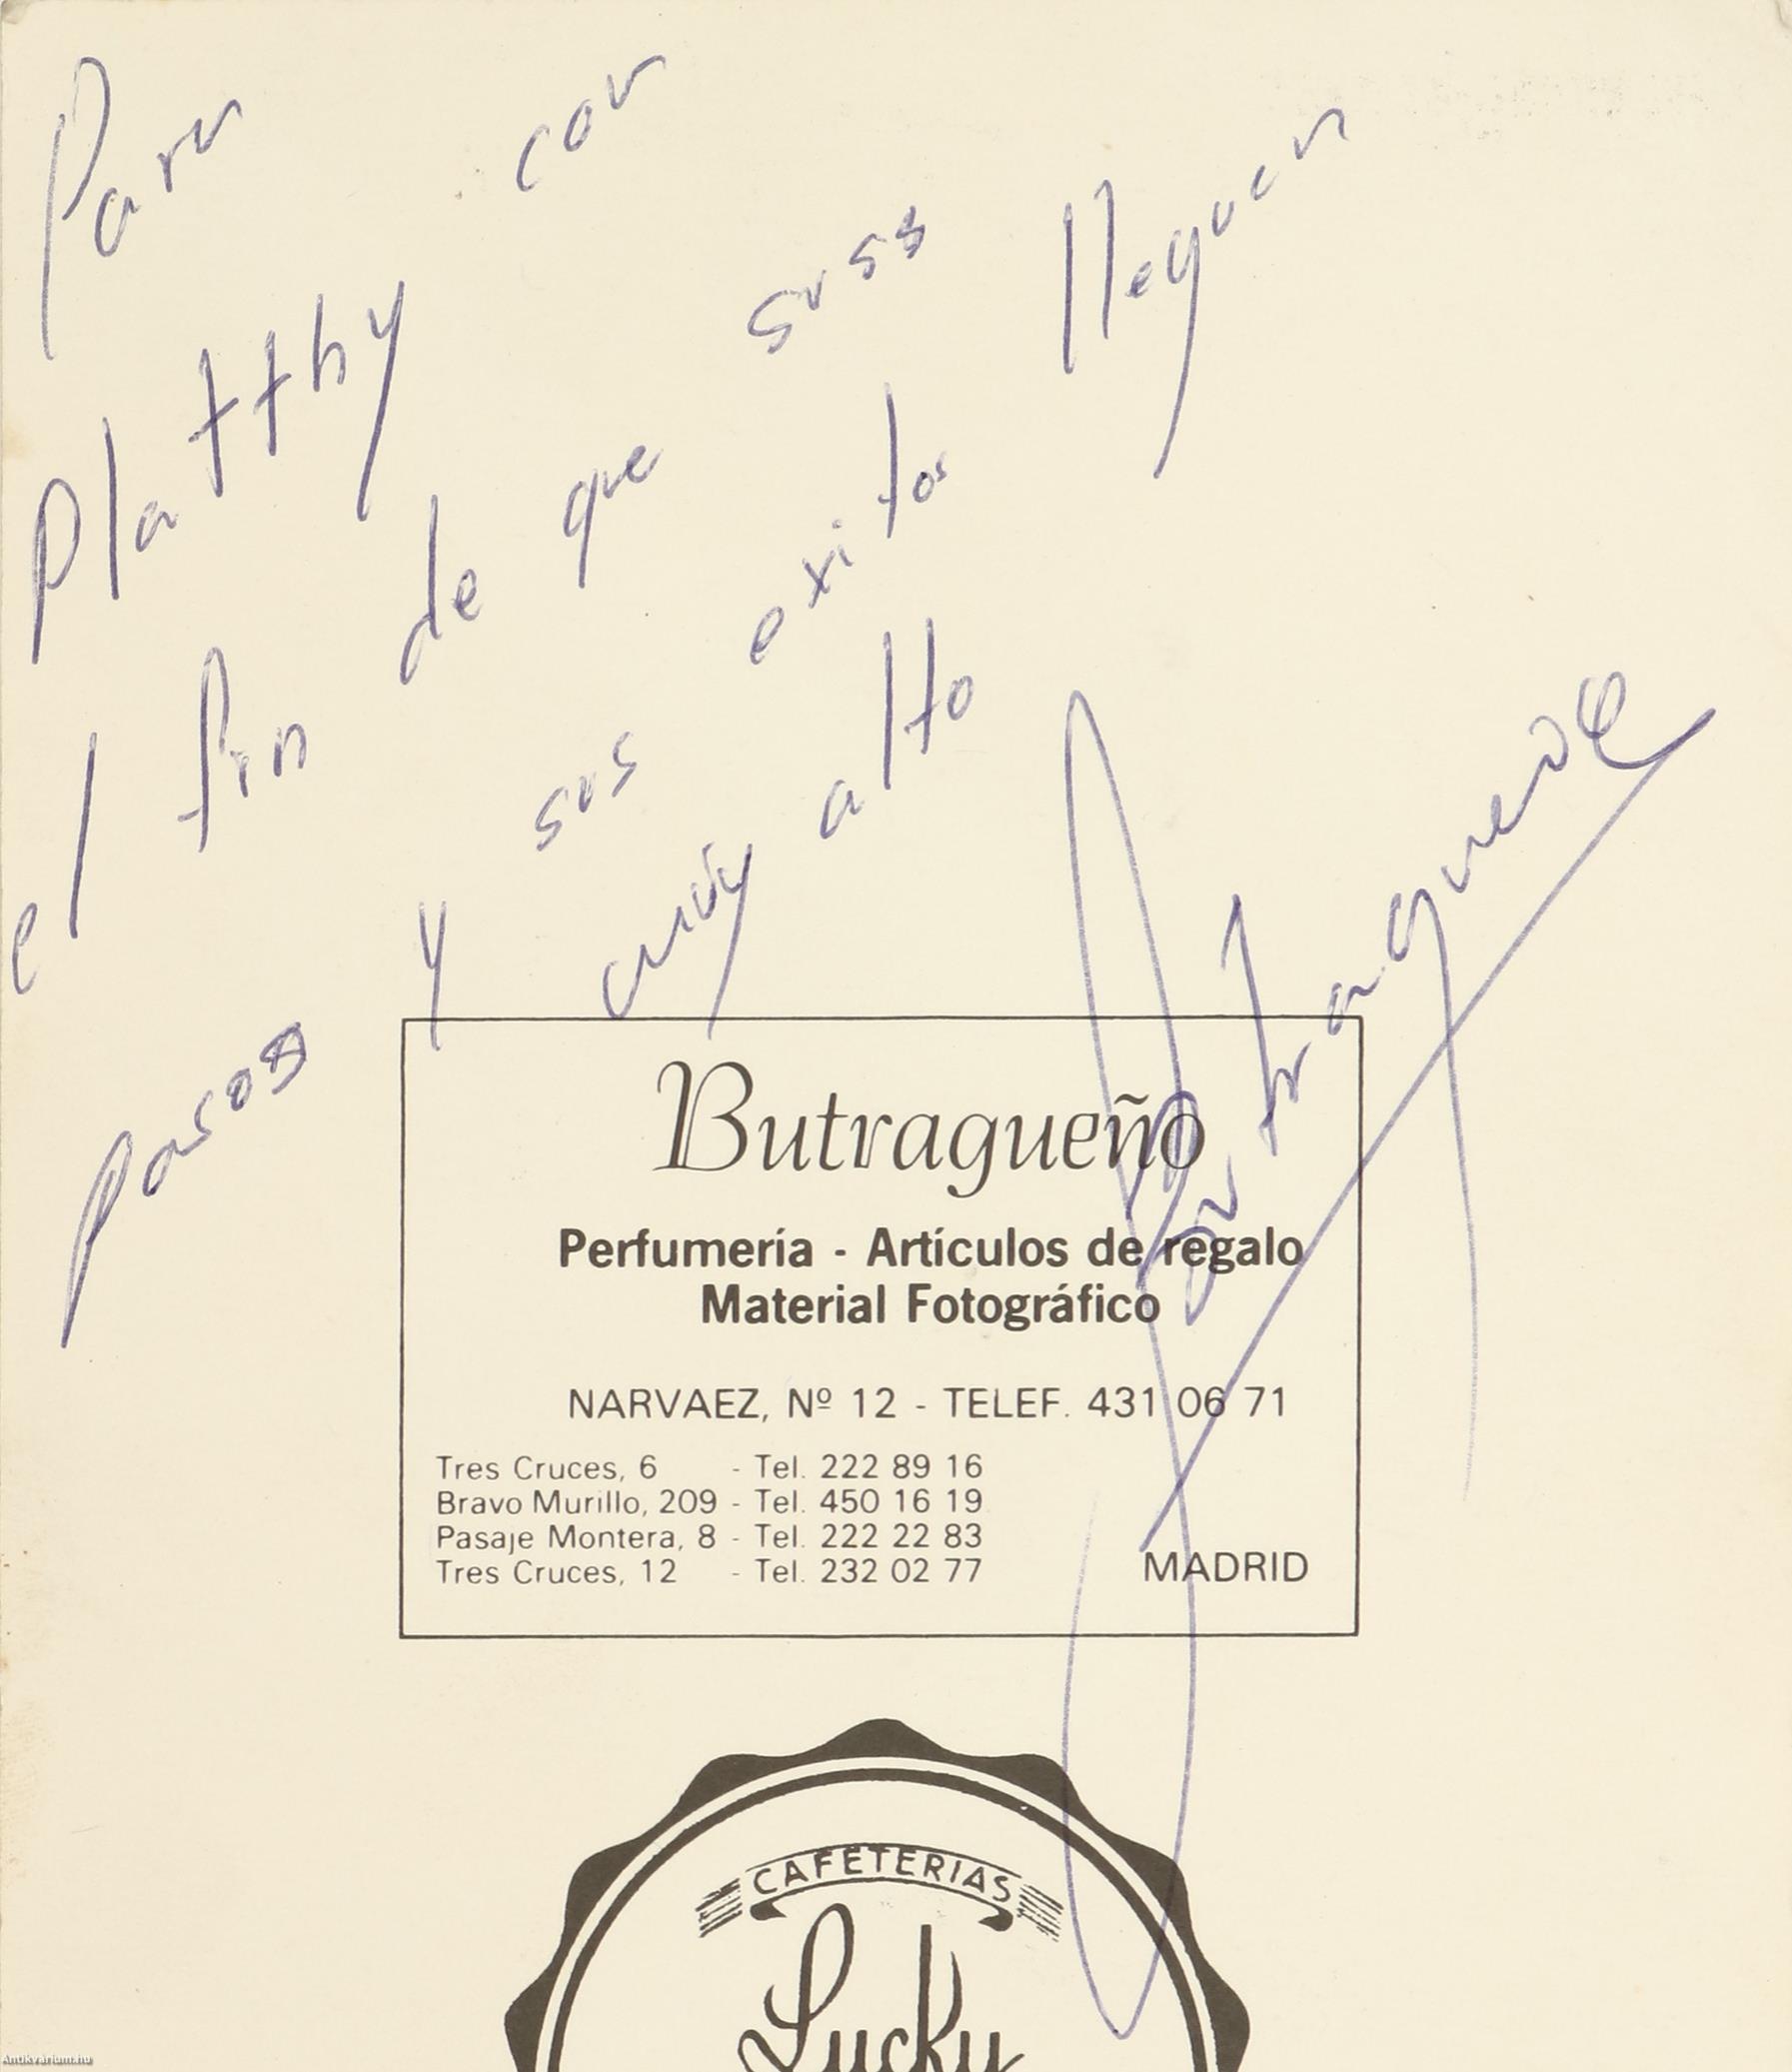 Para
Platthy con
el fin de que suss
pasos y sus exitos lleguen
muy alto
Butragueño
Butragueño
Perfumería - Artículos de regalo
Material Fotográfico
NARVAEZ, Nº 12 - TELEF. 431 06 71
Tres Cruces, 6 - Tel. 222 89 16
Bravo Murillo, 209 - Tel. 450 16 19
Pasaje Montera, 8 - Tel. 222 22 83
Tres Cruces, 12 - Tel. 232 02 77
MADRID
CAFETERIAS
Lucky
Antikvárium.hu